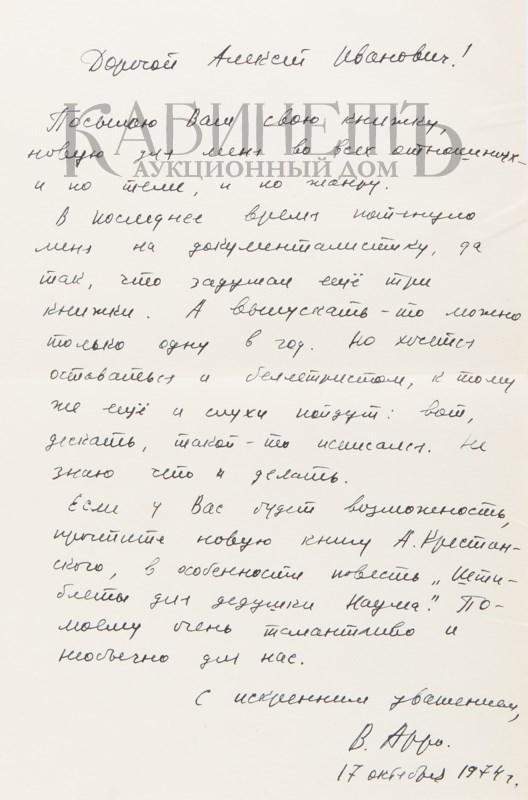 Дорогой Алексей Иванович!
КАБИНЕТЪ
АУКЦИОННЫЙ ДОМ
Посылаю Вам свою книжку,
новую для меня во всех отношениях -
и по теме, и по жанру.
В последнее время потянуло
меня на документалистику, да
так, что задумал ещё три
книжки. А выпускать-то можно
только одну в год. Но хочется
оставаться и беллетристом, к тому
же ещё и слухи пойдут: вот,
дескать, такой-то исписался. Не
знаю что и делать.
Если у Вас будет возможность,
прочтите новую книгу А. Крестин-
ского, в особенности повесть „Штиб-
леты для дедушки Наума". По-
моему очень талантливо и
необычно для нас.
С искренним уважением,
В. Арро.
17 октября 1974 г.